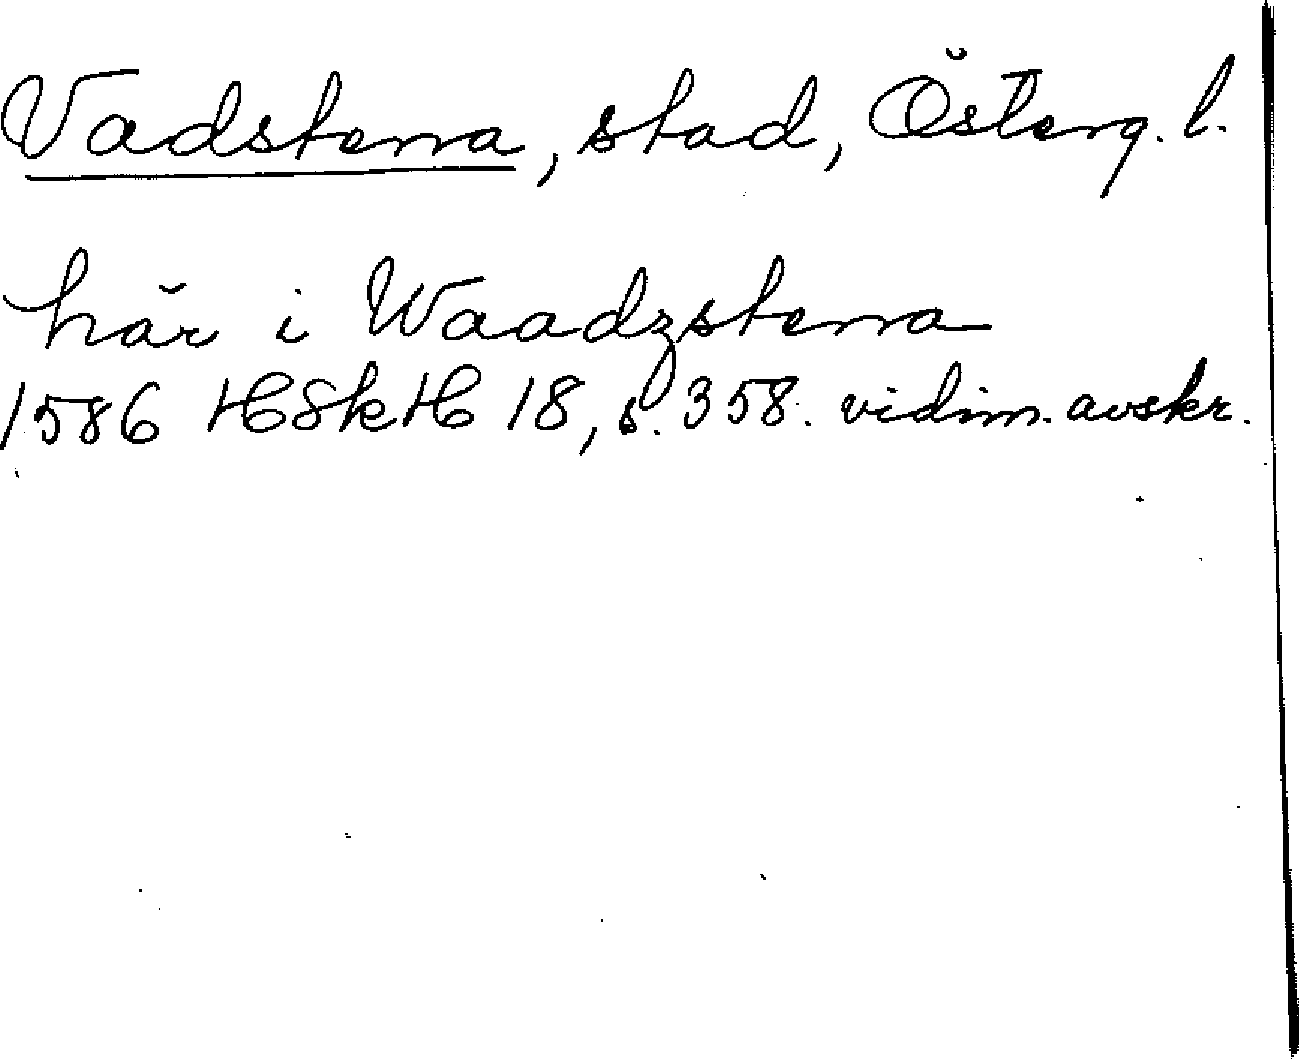 Vadstena, stad, Österg. l.
här i Waadzstena
1586 HSkH 18, s. 358. vidim. avskr.